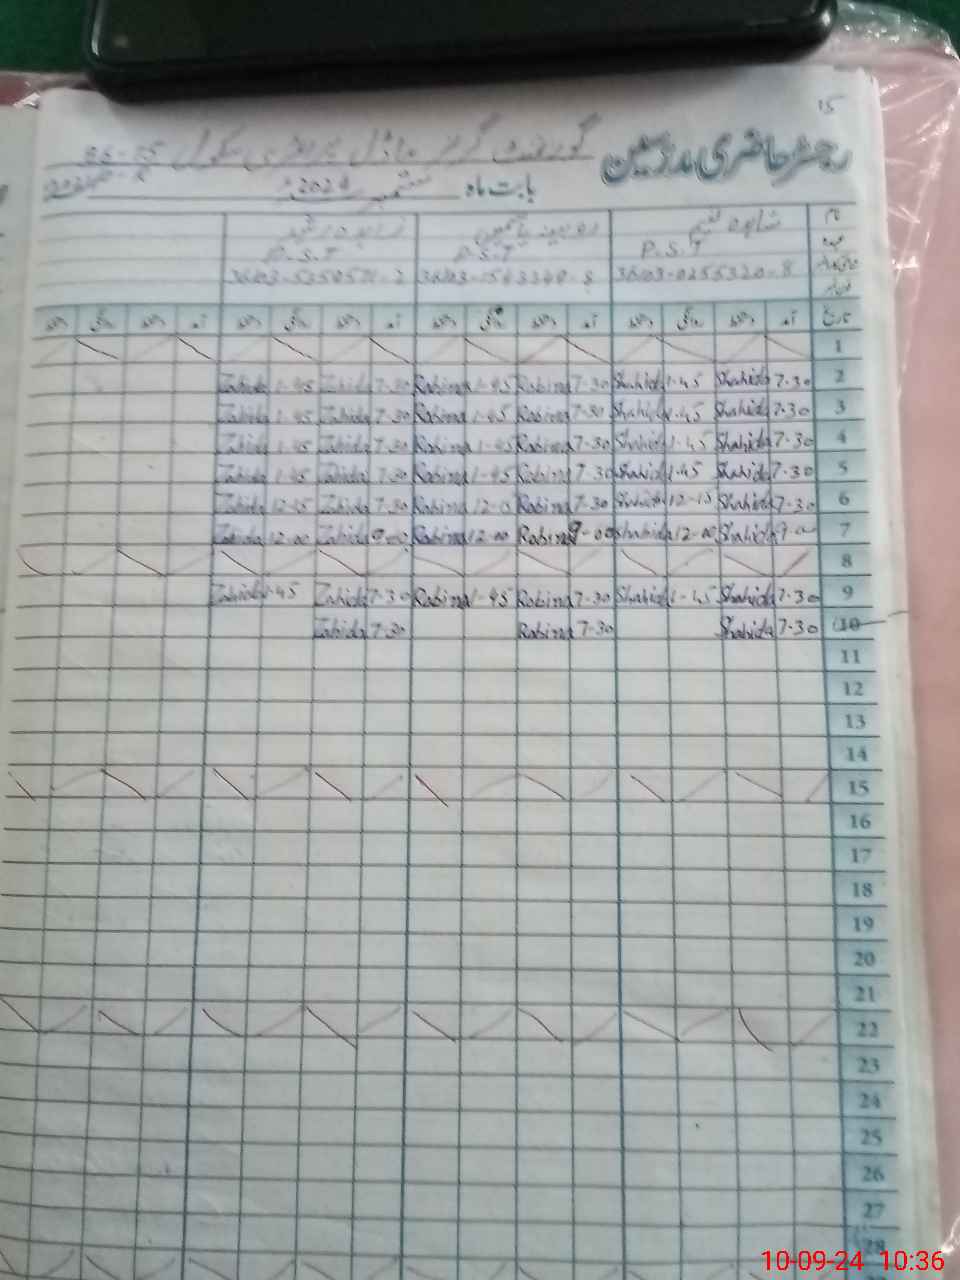 15
رجسٹر حاضری مدرسین گورنمنٹ گرلز ماڈل پرائمری سکول
بابت ماہ ستمبر 2024
نام شاہدہ نسیم روبینہ یاسمین زاہدہ رشید
عہدہ P.S.T P.S.T P.S.T
تاریخ آمد دستخط روانگی دستخط آمد دستخط روانگی دستخط آمد دستخط روانگی دستخط آمد دستخط روانگی دستخط
1
Zahida 1-45 Zahida 7-30 Robina 1-45 Robina 7-30 Shahida 1-45 Shahida 7-30 2
Zahida 1-45 Zahida 7-30 Robina 1-45 Robina 7-30 Shahida 1-45 Shahida 7-30 3
Zahida 1-45 Zahida 7-30 Robina 1-45 Robina 7-30 Shahida 1-45 Shahida 7-30 4
Zahida 1-45 Zahida 7-30 Robina 1-45 Robina 7-30 Shahida 1-45 Shahida 7-30 5
Zahida 12-15 Zahida 7-30 Robina 12-15 Robina 7-30 Shahida 12-15 Shahida 7-30 6
Zahida 12-00 Zahida 9-00 Robina 12-00 Robina 9-00 Shahida 12-00 Shahida 9-00 7
8
Zahida 1-45 Zahida 7-30 Robina 1-45 Robina 7-30 Shahida 1-45 Shahida 7-30 9
Zahida 7-30 Robina 7-30 Shahida 7-30 10
11
12
13
14
15
16
17
18
19
20
21
22
23
24
25
26
27
28
10-09-24 10:36